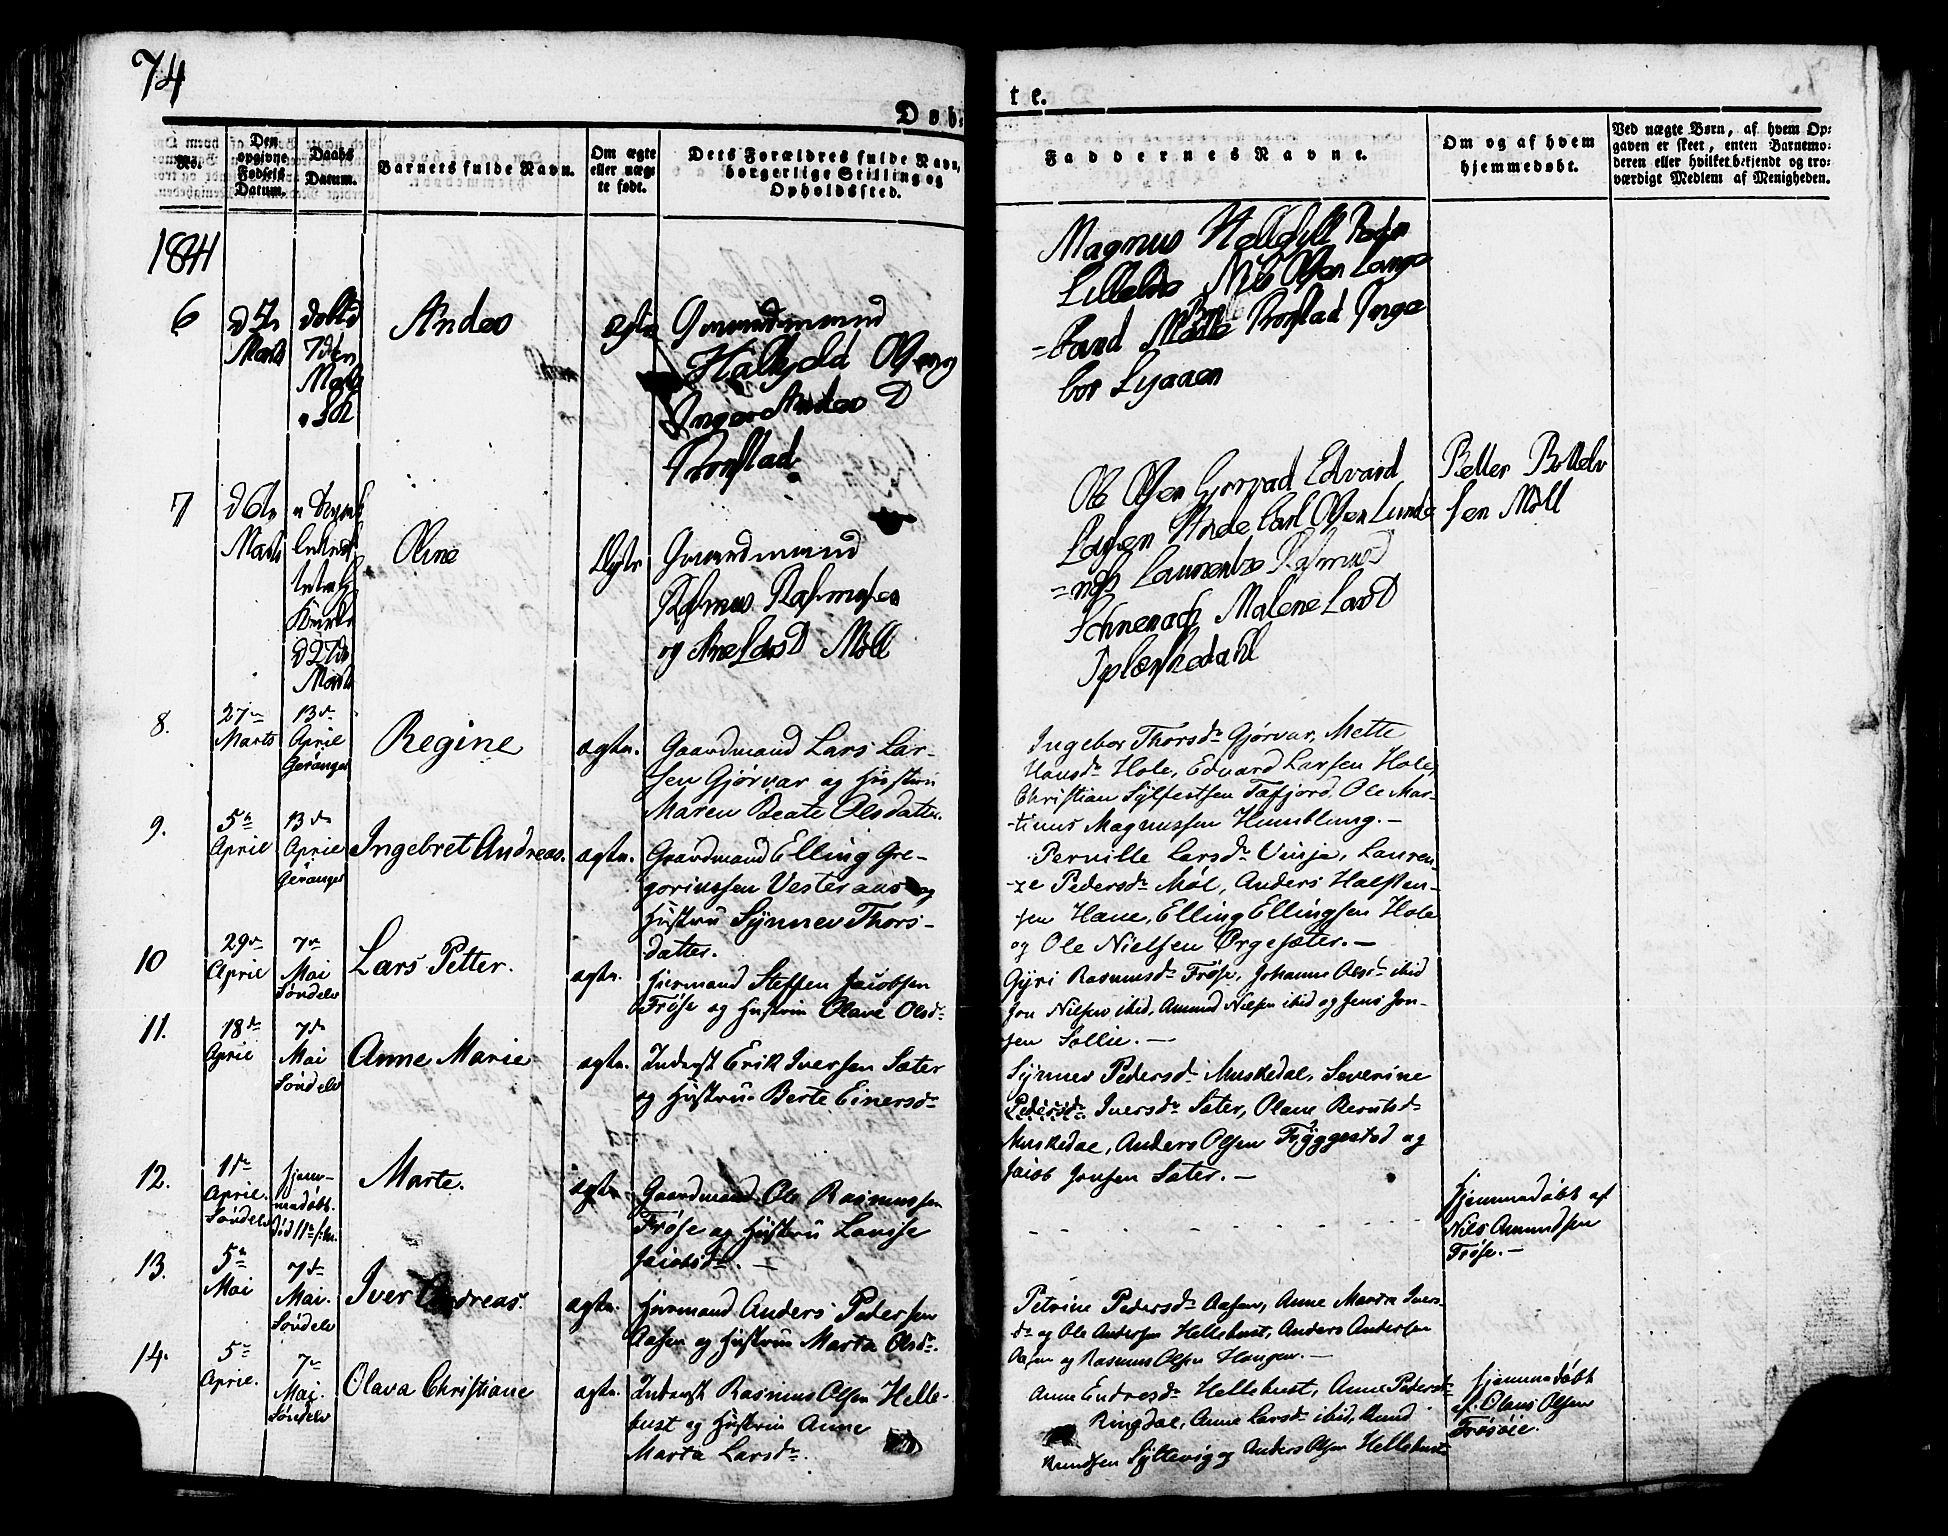 74
Døb-
te.
No.
Den
opgivne
Fødsels
Datum.
Daabs
Datum.
Barnets fulde Navn.
Om ægte
eller uægte
født.
Dets Forældres fulde Navn,
borgerlige Stilling og
Opholdssted.
Faddernes Navne.
Om og af hvem
hjemmedøbt.
Ved uægte Børn, af hvem Op-
gaven er skeet, enten Barnemo-
deren eller hvilket bekjendt og tro-
værdigt Medlem af Menigheden.
1841
6
d 5te
Marts
døbt d
7den
Marts
Anders
Ægte
Gaardmand
Olsen og
Inger Anders D
Magnus
Nils Olsen Lange
-land
7
d 6te
Marts
d 27de
Marts
Oline
Gaardmand
Rasmus Rasmusen
og Ane Lars D Möll
Ole Olsen Gjørvad Edvard
Larsen Hole Carl Olsen Lunde
Malene Lars D
Petter
sen Möll
8.
27de
Marts
13de
April
Geranger
Regine
ægte.
Gaardmand Lars Lar-
sen Gjörvar og Hustru
Maren Beate Olsdatter.
Ingebor Thorsdr Gjörvar, Mette
Hansdr Hole, Edvard Larsen Hole,
Christian Sylfestsen Tafjord Ole Mar-
tinus Magnussen Humblung.-
9.
5te
April
13de
April
Geranger
Ingebret Andreas.
ægte.
Gaardmand Elling Gre-
goriussen Vesteraas og
Hustru Synnev Thors-
datter.
Pernille Larsdr Vinje, Lauren-
ze Pedersdr Möl, Anders Halsten-
sen Hane, Elling Ellingsen Hole
og Ole Nielsen Ørgesæter.-
10
29de
April
7de
Mai
Söndelv
Lars Petter.
ægte.
Huusmand Steffen Jacobsen
Fröse og Hustru Olave Olsdr
Gyri Rasmusdr Fröse, Johanne Olsdr ibid
Jon Nielsen ibid, Amund Nielsen ibid og Jens Jon-
sen Sollie.-
11.
18de
April
7de
Mai
Söndelv
Anne Marie
ægte.
Inderst Erik Iversen Sæter
og Hustru Berte Einersdr
Synnev Pedersdr Muskedal, Severine
Pedersdr Iversdr Sæter, Olane Berntsdr
Muskedal, Anders Olsen Fryggestad og
Jacob Jonsen Sæter.-
12.
1de
April.
Söndelv
hjem-
medöbt.
död 11te
Marte.
ægte
Gaardmand Ole Rasmussen
Fröse og Hustru Lovise
Jacobsdr.-
Hjemmedöbt af
Nils Amundsen
Fröse.-
13.
5te
Mai
7de
Mai.
Söndelv
Iver Andreas.
ægte.
Huusmand Anders Pedersen
Aasen og Hustru Marta Olsdr.
Petrine Pedersdr Aasen, Anne Marta Ivers-
dr og Ole Andersen Hellebust, Anders Andersen
Aasen og Rasmus Olsen Haugen.-
14.
5te
April.
7de
Mai.
Söndelv
Olava Christiane
ægte.
Inderst Rasmus Olsen Helle-
bust og Hustru Anne
Marta Larsdr.
Anne Endresdr Hellebust, Anne Pedersdr
Ringdal, Anne Larsdr ibid, Knud
Knudsen Syltevig og Anders Olsen Hellebust
Hjemmedöbt
af Olaus Olsen